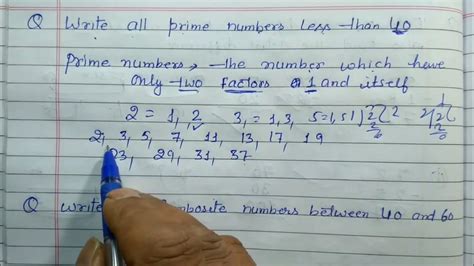 Q Write all prime numbers less than 40
Prime numbers → the number which have
only two factors 1 and itself
2 = 1, 2 3, = 1, 3, 5 = 1, 5
2, 3, 5, 7, 11, 13, 17, 19
23, 29, 31, 37
Q Write composite numbers between 40 and 60